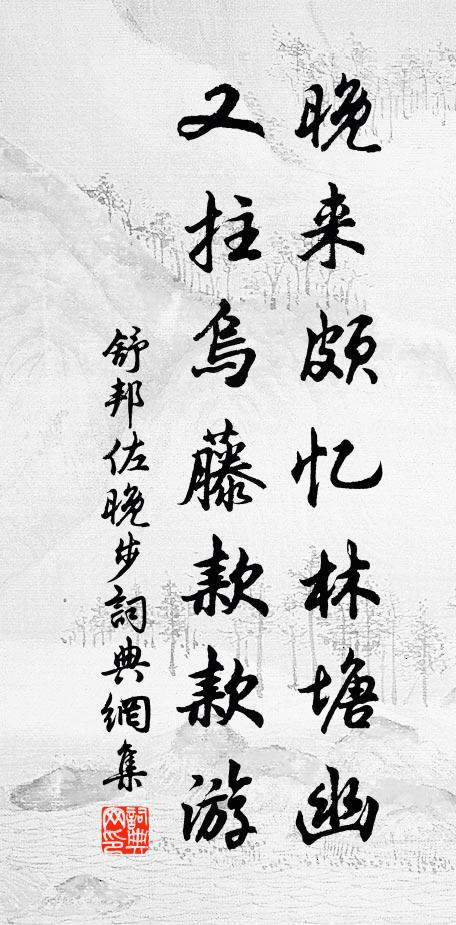 晚来颇忆林塘幽
又拄乌藤款款游
舒邦佐晚步詞典網集
詞典
网印